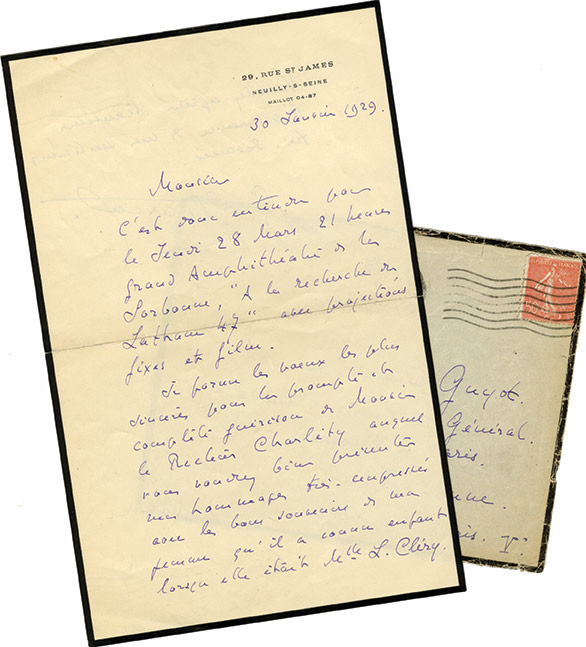 29, RUE ST JAMES
NEUILLY-S-SEINE
MAILLOT 04-87
30 Janvier 1929.
Monsieur
C'est donc entendu pour
le Jeudi 28 Mars 21 heures
grand Amphithéâtre de la
Sorbonne, "A la recherche du
Latham 47" avec projections
fixes et film.
Je forme les voeux les plus
sincères pour la prompte et
complète guérison de Monsieur
le Recteur Charléty auquel
vous voudrez bien présenter
mes hommages très empressés
avec les bons souvenirs de ma
femme qu'il a connue enfant
lorsqu'elle était Melle L. Cléry.
Guyot.
Général.
aris.
nne.
is. V